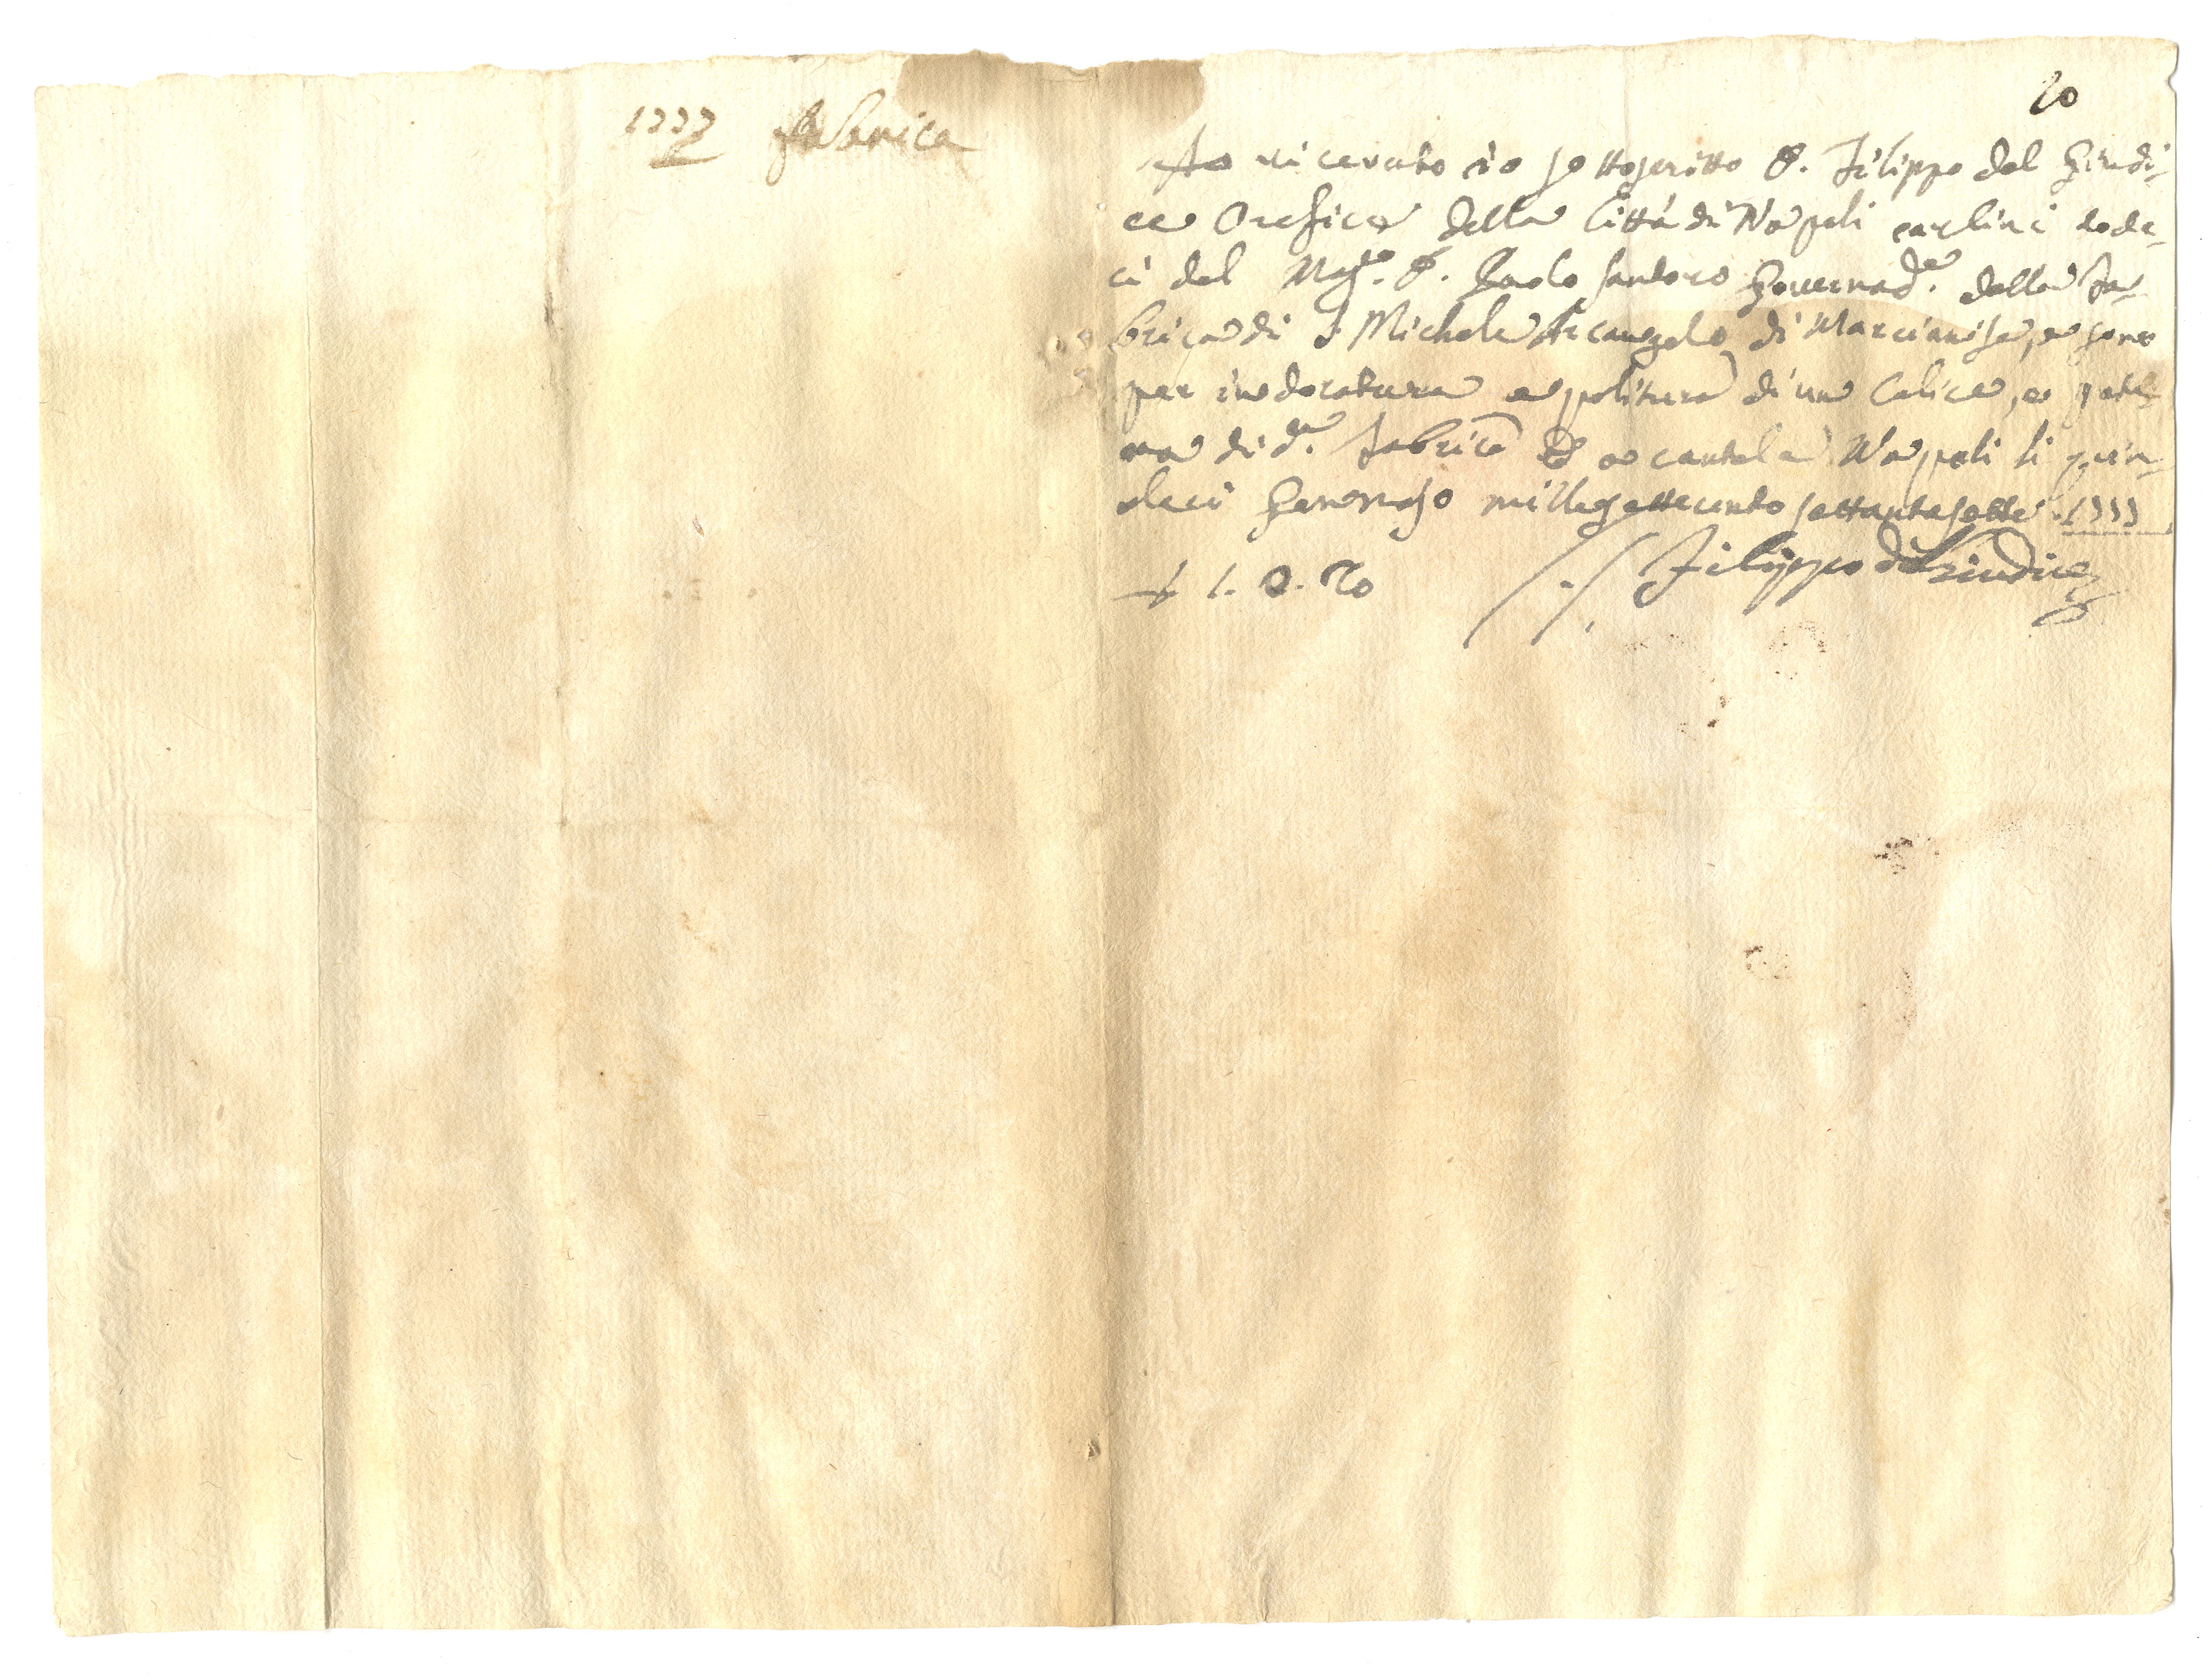 1777 fabrica
20
Ho ricevuto io sottoscritto D. Filippo del Giudi-
ce Orefice della Città di Napoli carlini dode-
ci dal Mag.co D. Paolo Santoro Governad.e della fa-
brica di S Michele Arcangelo di Marcianise, e sono
per indoratura e politura di un Calice, e pate-
na di d.a fabrica e a cautela Napoli li quin-
deci Gennajo millesettecentosettantasette 1777
1. 0. 20 Filippo del Giudice